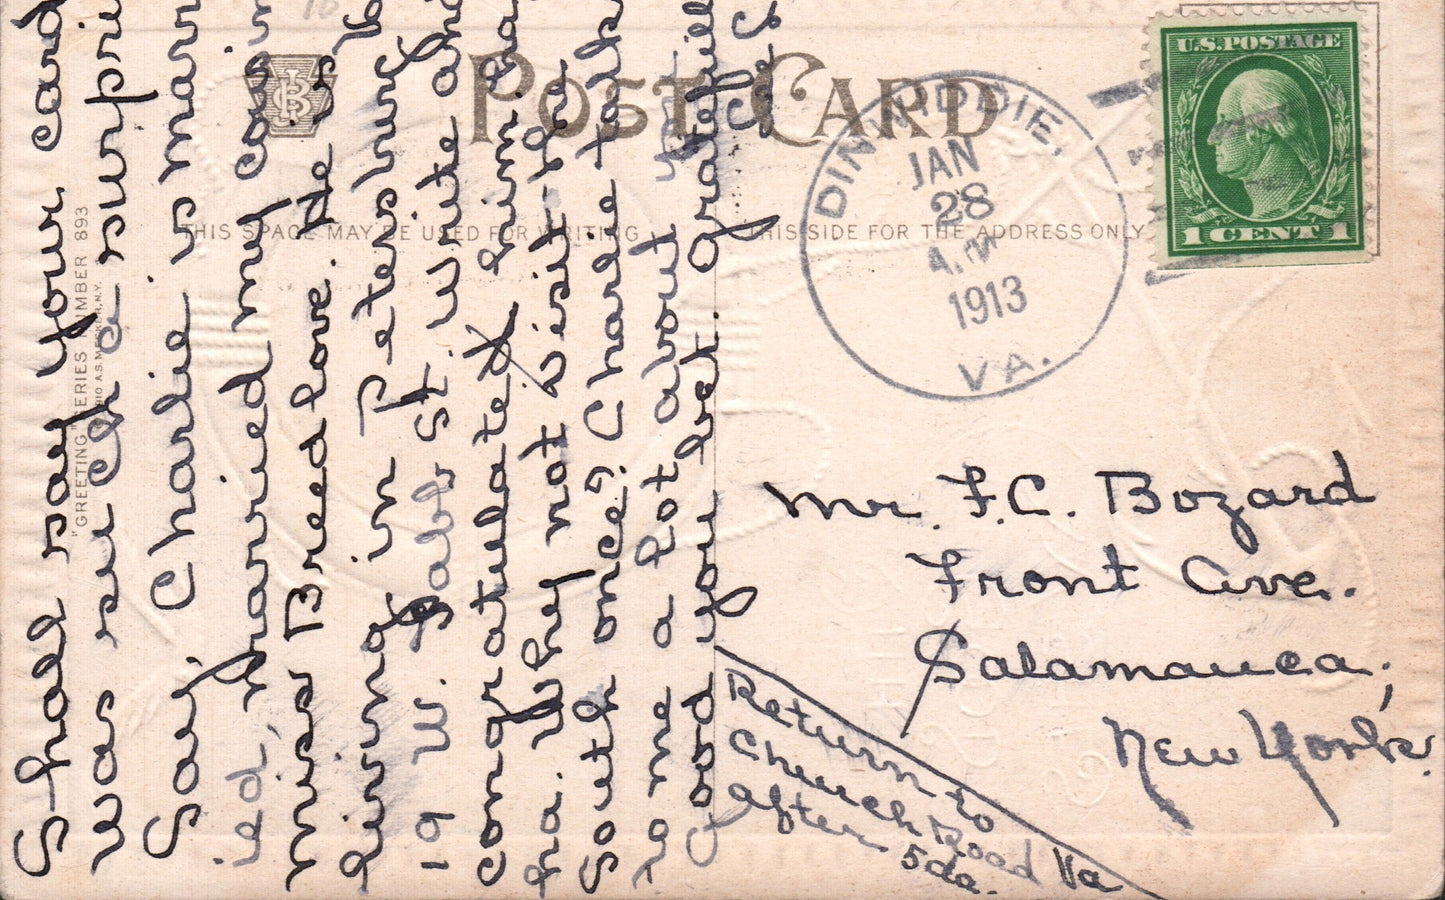 POST CARD
THIS SPACE MAY BE USED FOR WRITING
THIS SIDE FOR THE ADDRESS ONLY
"GREETING" SERIES NUMBER 893
U.S. POSTAGE
1 CENT 1
DINWIDDIE,
JAN
28
A.M
1913
VA.
Shall say your card
was such a surpri
Say, Charlie is marr
ied, married my cousin
miss Breedlove. He is
living in Petersburg
19 W. Tabb St. write and
congratulated him ha
ha. Why not visit the
South once? Charlie talks
to me a lot about you
Good you bet. Gratefully
Mr. F.C. Bozard
Front Ave.
Salamauca,
New York.
Return to
Church Road Va
after 5da.